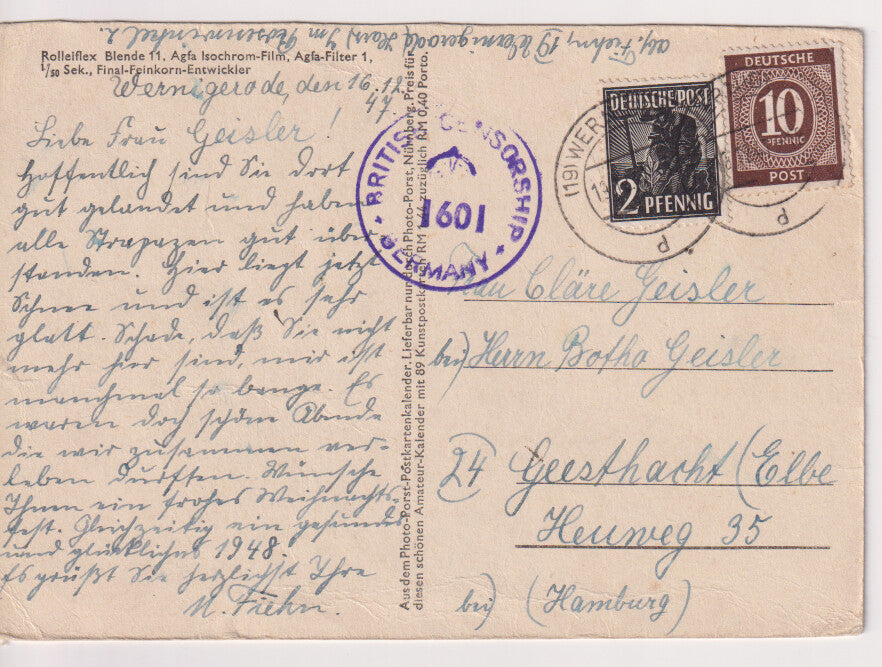 abs. Fiehn, 19 Wernigerode (Harz) Im Rosenwinkel 2.
Rolleiflex Blende 11, Agfa Isochrom-Film, Agfa-Filter 1,
1/50 Sek., Final-Feinkorn-Entwickler
Wernigerode, den 16.12.
47.
Liebe Frau Geisler!
Hoffentlich sind Sie dort
gut gelandet und haben
alle Strapazen gut über-
standen. Hier liegt jetzt
Schnee und ist es sehr
glatt. Schade, daß Sie nicht
mehr hier sind, mir ist
manchmal so bange. Es
waren doch schöne Abende
die wir zusammen ver-
leben durften. Wünsche
Ihnen ein frohes Weihnachts-
fest. Gleichzeitig ein gesundes
und glückliches 1948.
Es grüßt Sie herzlichst Ihre
M. Fiehn.
Aus dem Photo-Porst-Postkartenkalender. Lieferbar nur durch Photo-Porst, Nürnberg. Preis für
diesen schönen Amateur-Kalender mit 89 Kunstpostkarten RM zuzüglich RM 0,40 Porto.
BRITISH CENSORSHIP
1601
GERMANY
(19) WER
d
d
DEUTSCHE POST
2 PFENNIG
DEUTSCHE
10
PFENNIG
POST
Frau Cläre Geisler
bei Herrn Botho Geisler
24 Geesthacht (Elbe
Heuweg 35
bei (Hamburg)